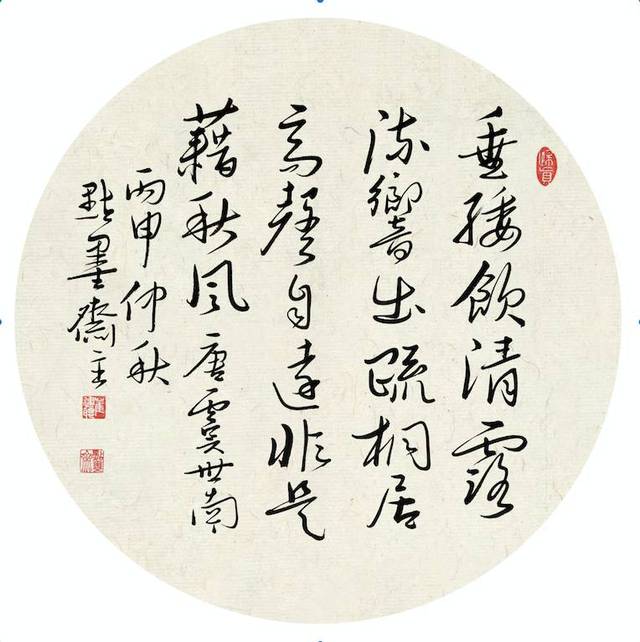 垂緌飲清露
流響出疏桐居
高聲自遠非是
藉秋風唐虞世南
丙申仲秋
點墨齋主